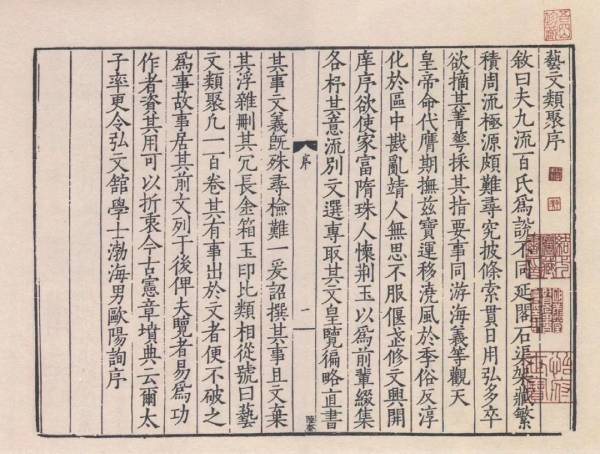 藝文類聚序
敘曰夫九流百氏爲說不同延閣石渠架藏繁
積周流極源頗難尋究披條索貫日用弘多卒
欲摘其菁華採其指要事同游海義等觀天
皇帝命代膺期撫茲寶運移澆風於季俗反淳
化於區中戡亂靖人無思不服偃武修文興開
庠序欲使家富隋珠人懷荆玉以爲前輩綴集
各杼其意流別文選專取其文皇覽徧略直書
序
一
其事文義既殊尋檢難一爰詔撰其事且文棄
其浮雜刪其冗長金箱玉印比類相從號曰藝
文類聚凡一百卷其有事出於文者便不破之
爲事故事居其前文列于後俾夫覽者易爲功
作者資其用可以折衷今古憲章墳典云爾太
子率更令弘文館學士渤海男歐陽詢序